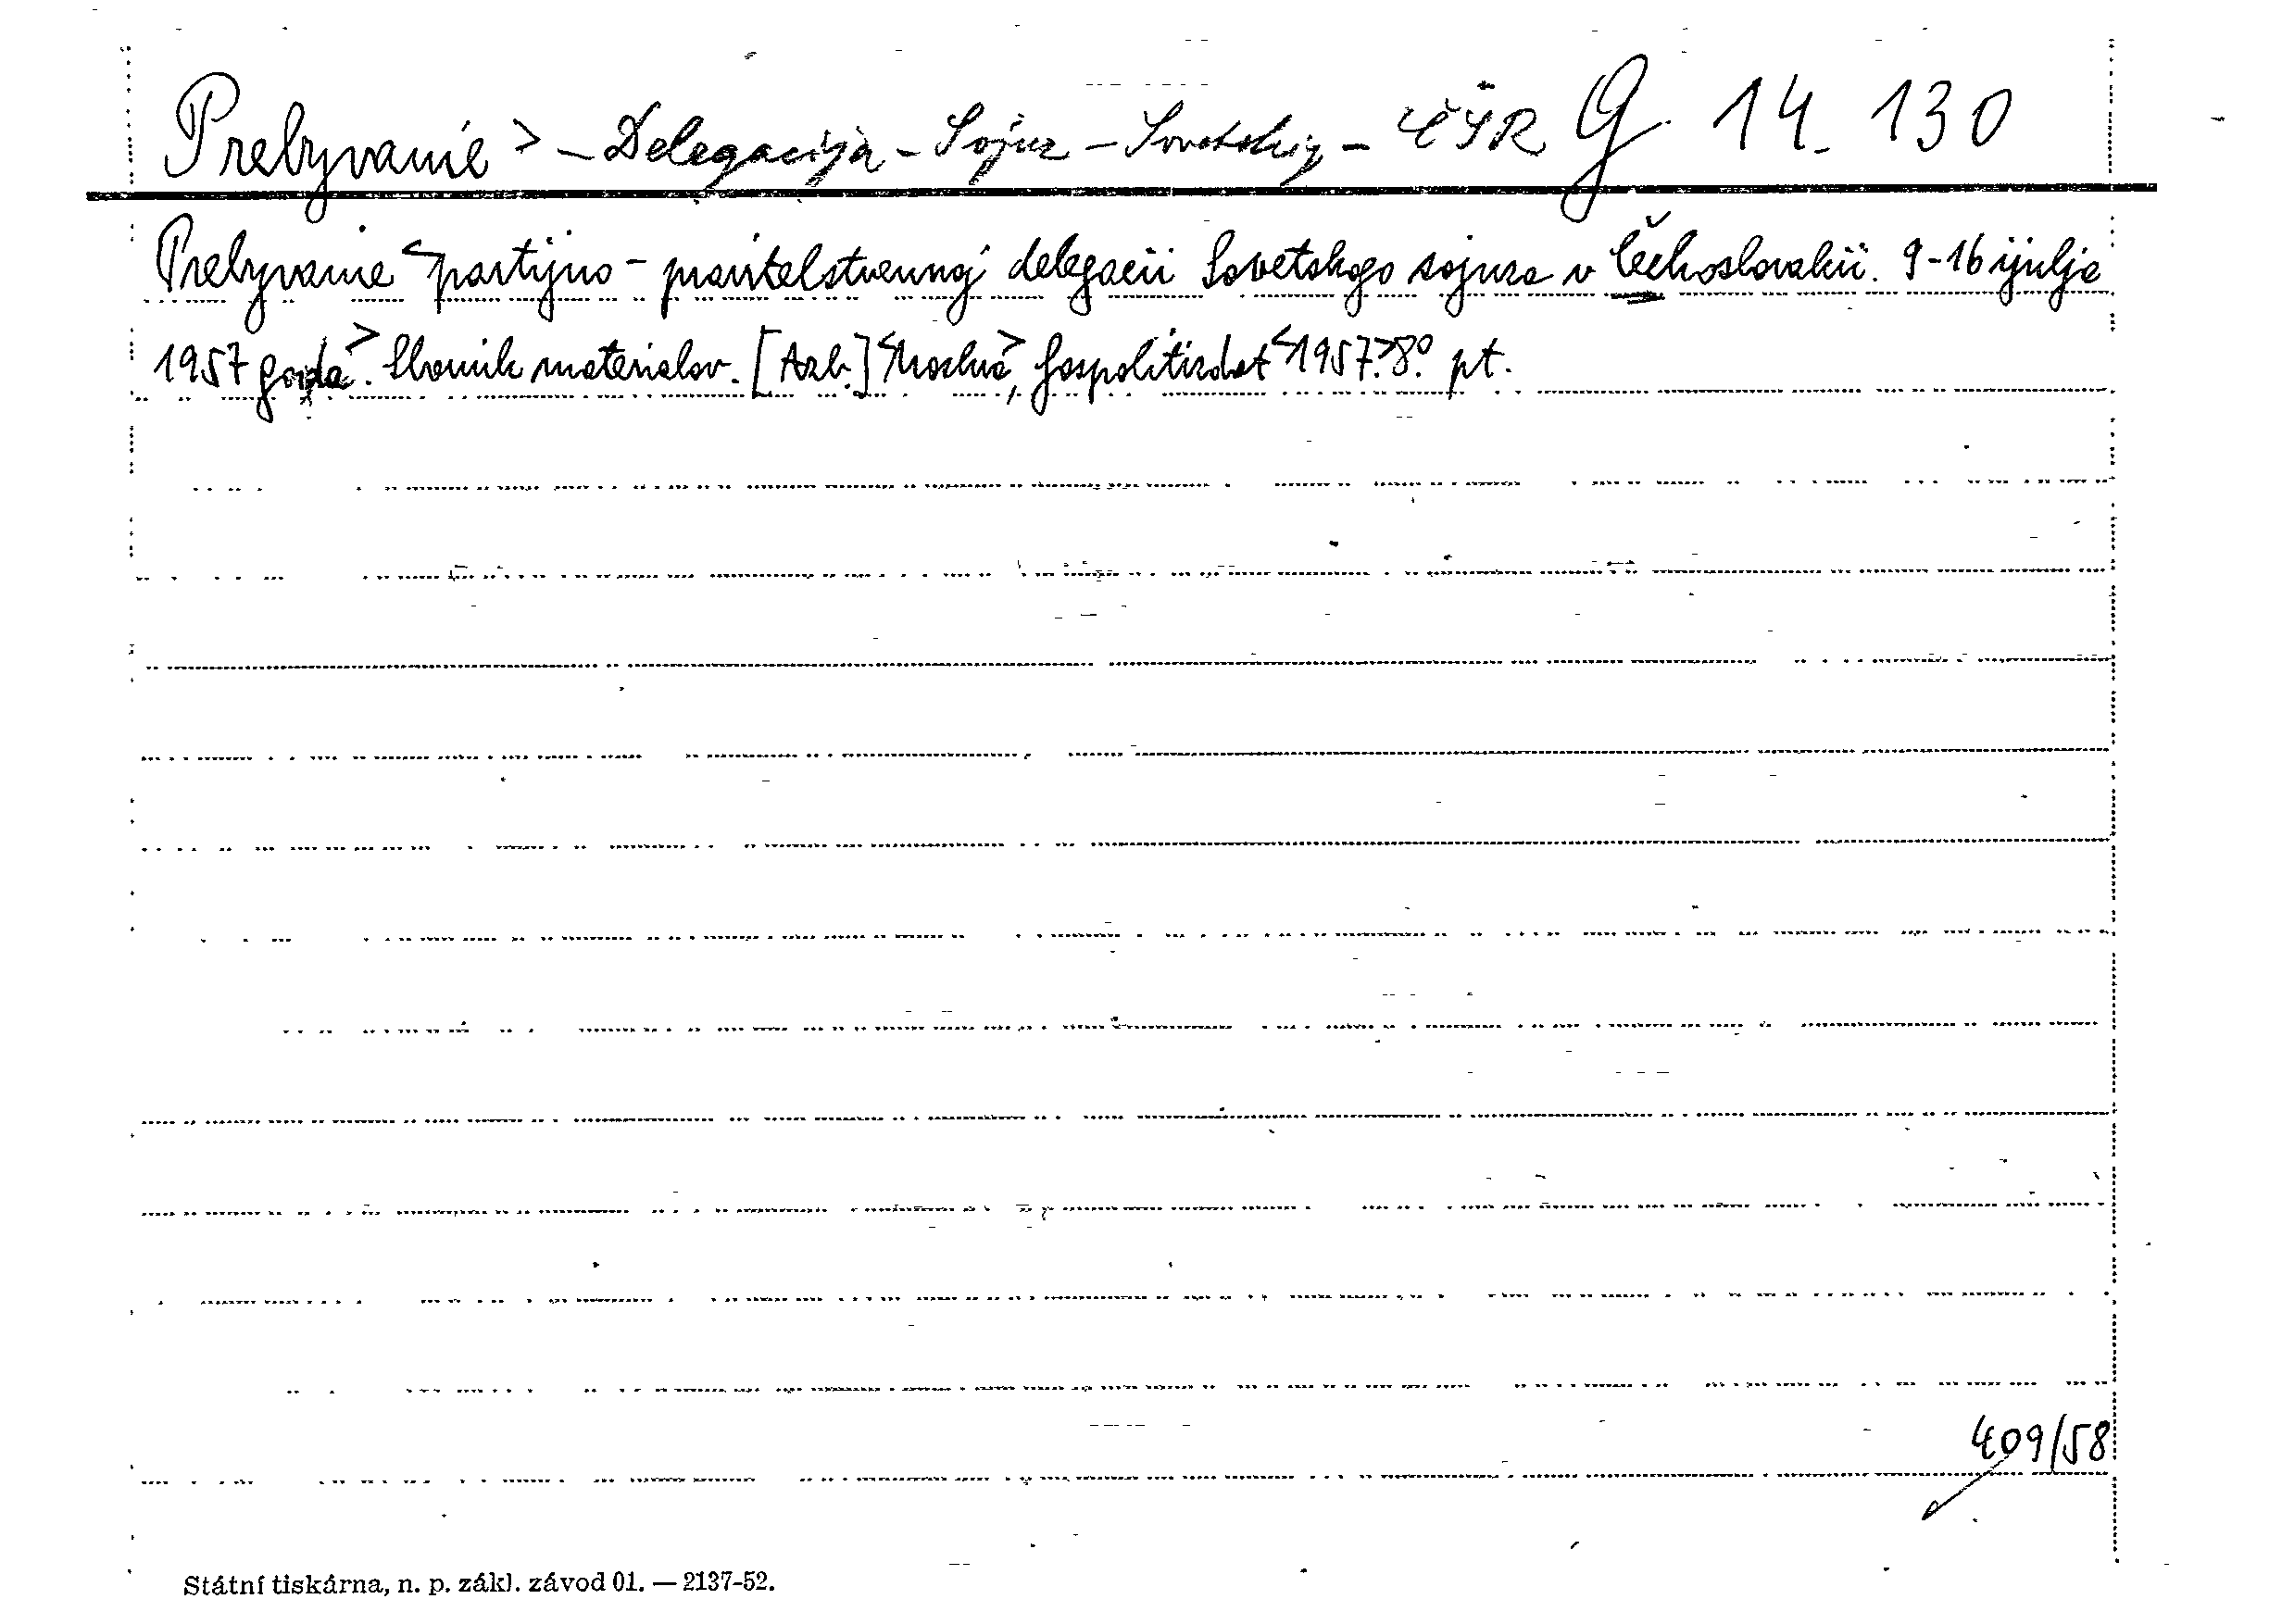 Prebyvanie > - Delegacija - Sojuz - Sovetskij - ČSR G 14. 130
Prebyvanie <partijno - pravitelstvennoj delegacii Sovetskogo sojuza v Čechoslovakii. 9-16 ijulja
1957 goda>. Sbornik materialov. [Azb.] <Moskva>, Gospolitizdat <1957.> 8° pt.
409/58
Státní tiskárna, n. p. zákl. závod 01. — 2137-52.